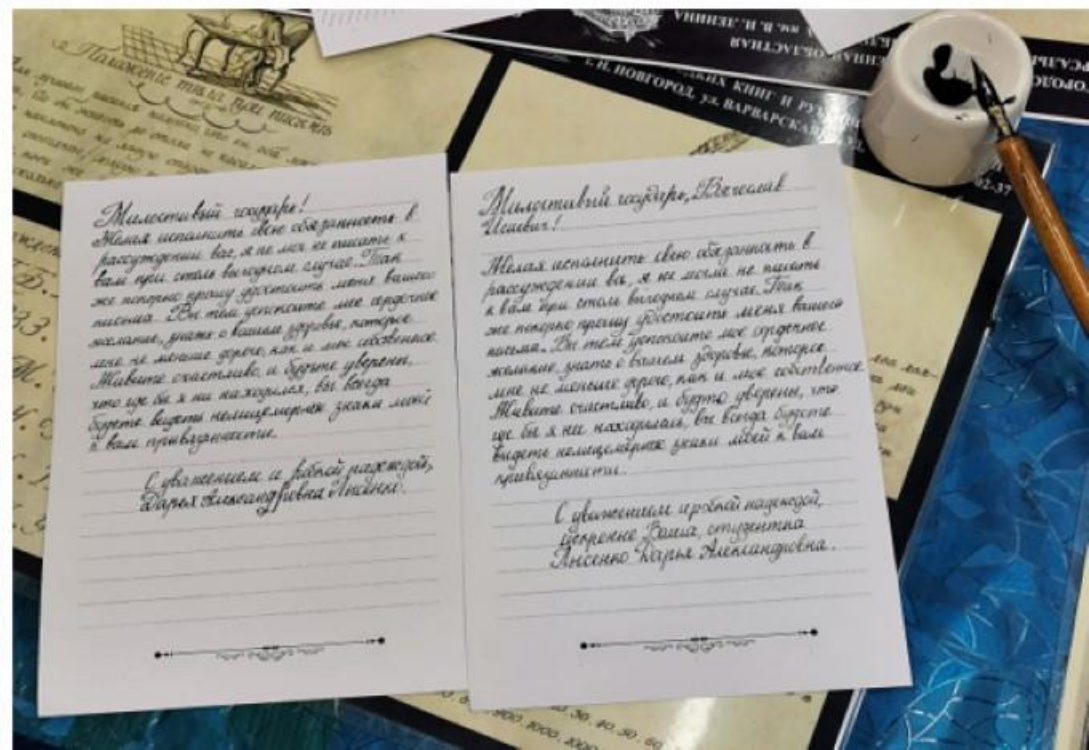 Положение тела при письме
ГОРОДС
ЕННАЯ ОБЛАСТНАЯ
им. В. И. ЛЕНИНА
КИХ КНИГ И РУ
г. Н. НОВГОРОД, ул. ВАРВАРСКАЯ
92-37
Милостивый государь!
Желая исполнить свою обязанность в
рассуждении вас, я не мог не писать к
вам при столь выгодном случае. Так
же покорно прошу удостоить меня вашего
письма. Вы тем успокоите мое сердечное
желание, знать о вашем здоровье, которое
мне не меньше дорого, как и мое собственное.
Живите счастливо, и будьте уверены,
что где бы я ни находился, вы всегда
будете видеть нелицемерные знаки моей
к вам привязанности.
С уважением и робкой надеждой,
Дарья Александровна Лысенко.
Милостивый государь, Вячеслав
Исаевич!
Желая исполнить свою обязанность в
рассуждении вас, я не могла не писать
к вам при столь выгодном случае. Так
же покорно прошу удостоить меня вашего
письма. Вы тем успокоите мое сердечное
желание знать о вашем здоровье, которое
мне не меньше дорого, как и мое собственное
Живите счастливо, и будьте уверены, что
где бы я не находилась, вы всегда будете
видеть нелицемерные знаки моей к вам
привязанности.
С уважением и робкой надеждой,
искренне Ваша, студентка
Лысенко Дарья Александровна.
30. 40. 50. 60
900. 1000.